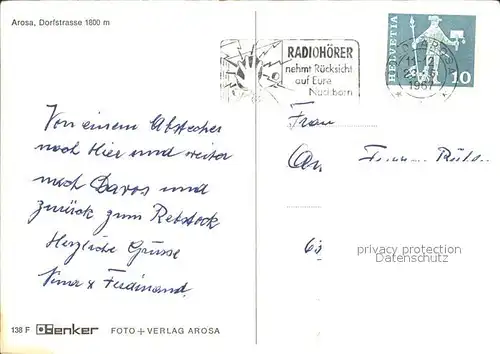 Arosa, Dorfstrasse 1800 m
RADIOHÖRER
nehmt Rücksicht
auf Eure
Nachbarn
HELVETIA
10
AROSA
11-12
1967
Von einem Abstecher
nach Hier und weiter
nach Davos und
zurück zum Rebstock
Herzliche Grüsse
& Ferdinand
Frau
privacy protection
Datenschutz
138 F Denker FOTO + VERLAG AROSA